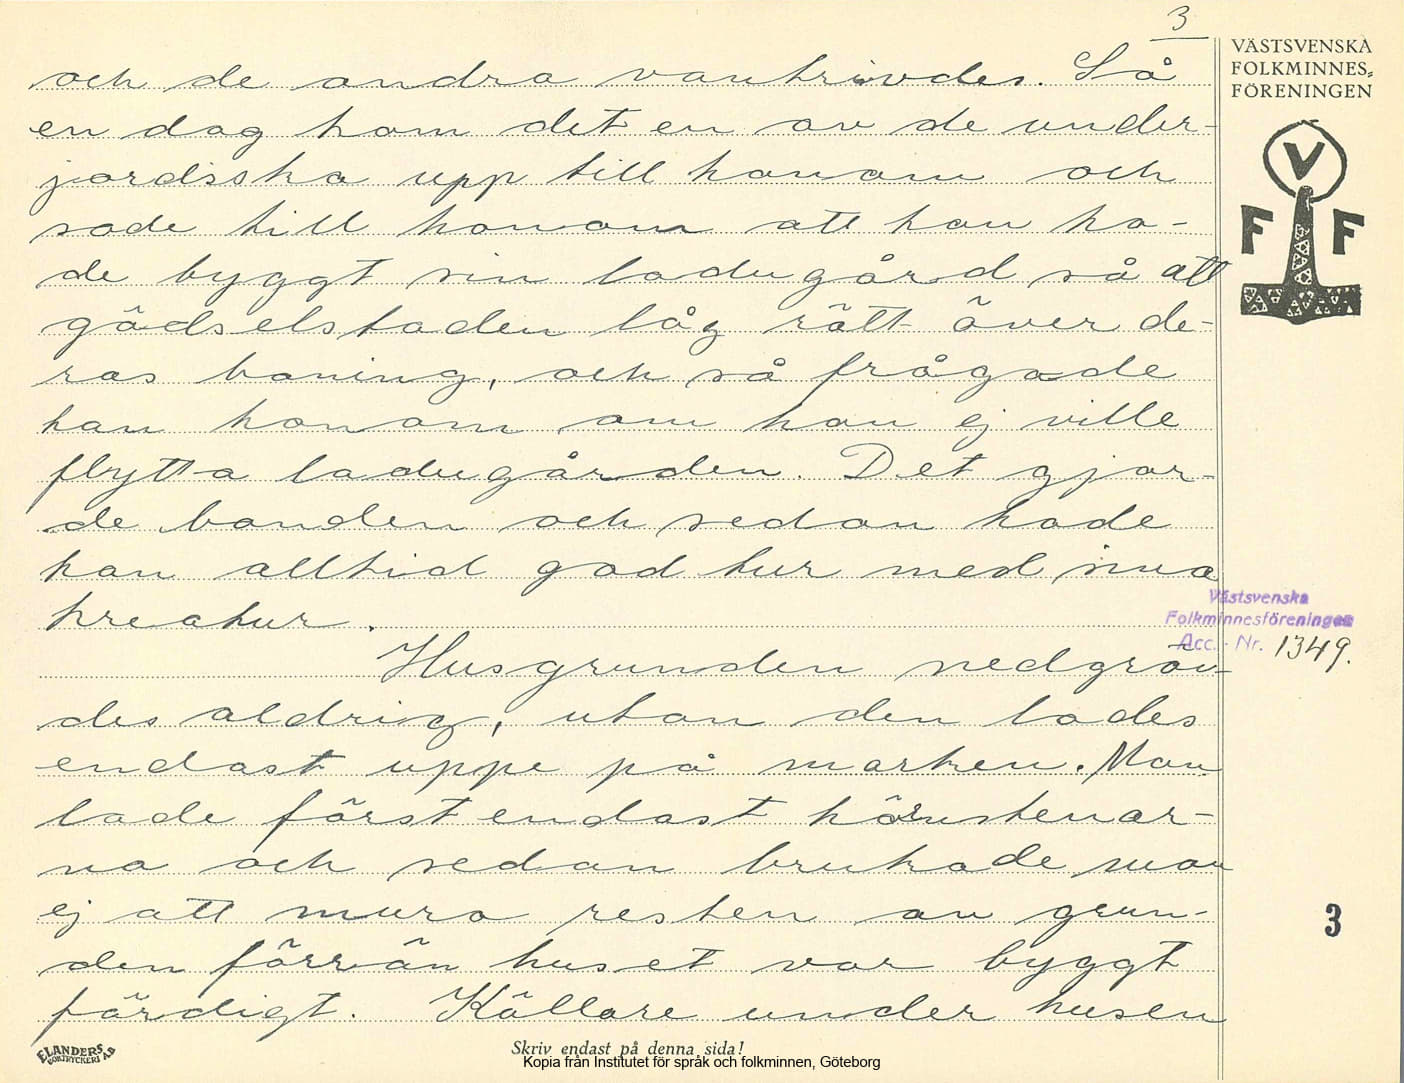 3
VÄSTSVENSKA
FOLKMINNES-
FÖRENINGEN
V
F F
och de andra vantrivdes. Så
en dag kom det en av de under-
jordsska upp till honom och
sade till honom att han ha-
de byggt sin ladugård så att
gödselstaden låg rätt över de-
ras boning, och så frågade
han honom om han ej ville
flytta ladugården. Det gjor-
de bonden och sedan hade
han alltid god tur med sina
kreatur.
Västsvenska
Folkminnesföreningen
Acc. - Nr. 1349.
Husgrunden nedgrov-
des aldrig, utan den lades
endast uppe på marken. Man
lade först endast hörnstenar-
na och sedan brukade man
ej att mura resten av grun-
den förrän huset var byggt
färdigt. Källare under husen
3
ELANDERS
BOKTRYCKERI AB
Skriv endast på denna sida!
Kopia från Institutet för språk och folkminnen, Göteborg